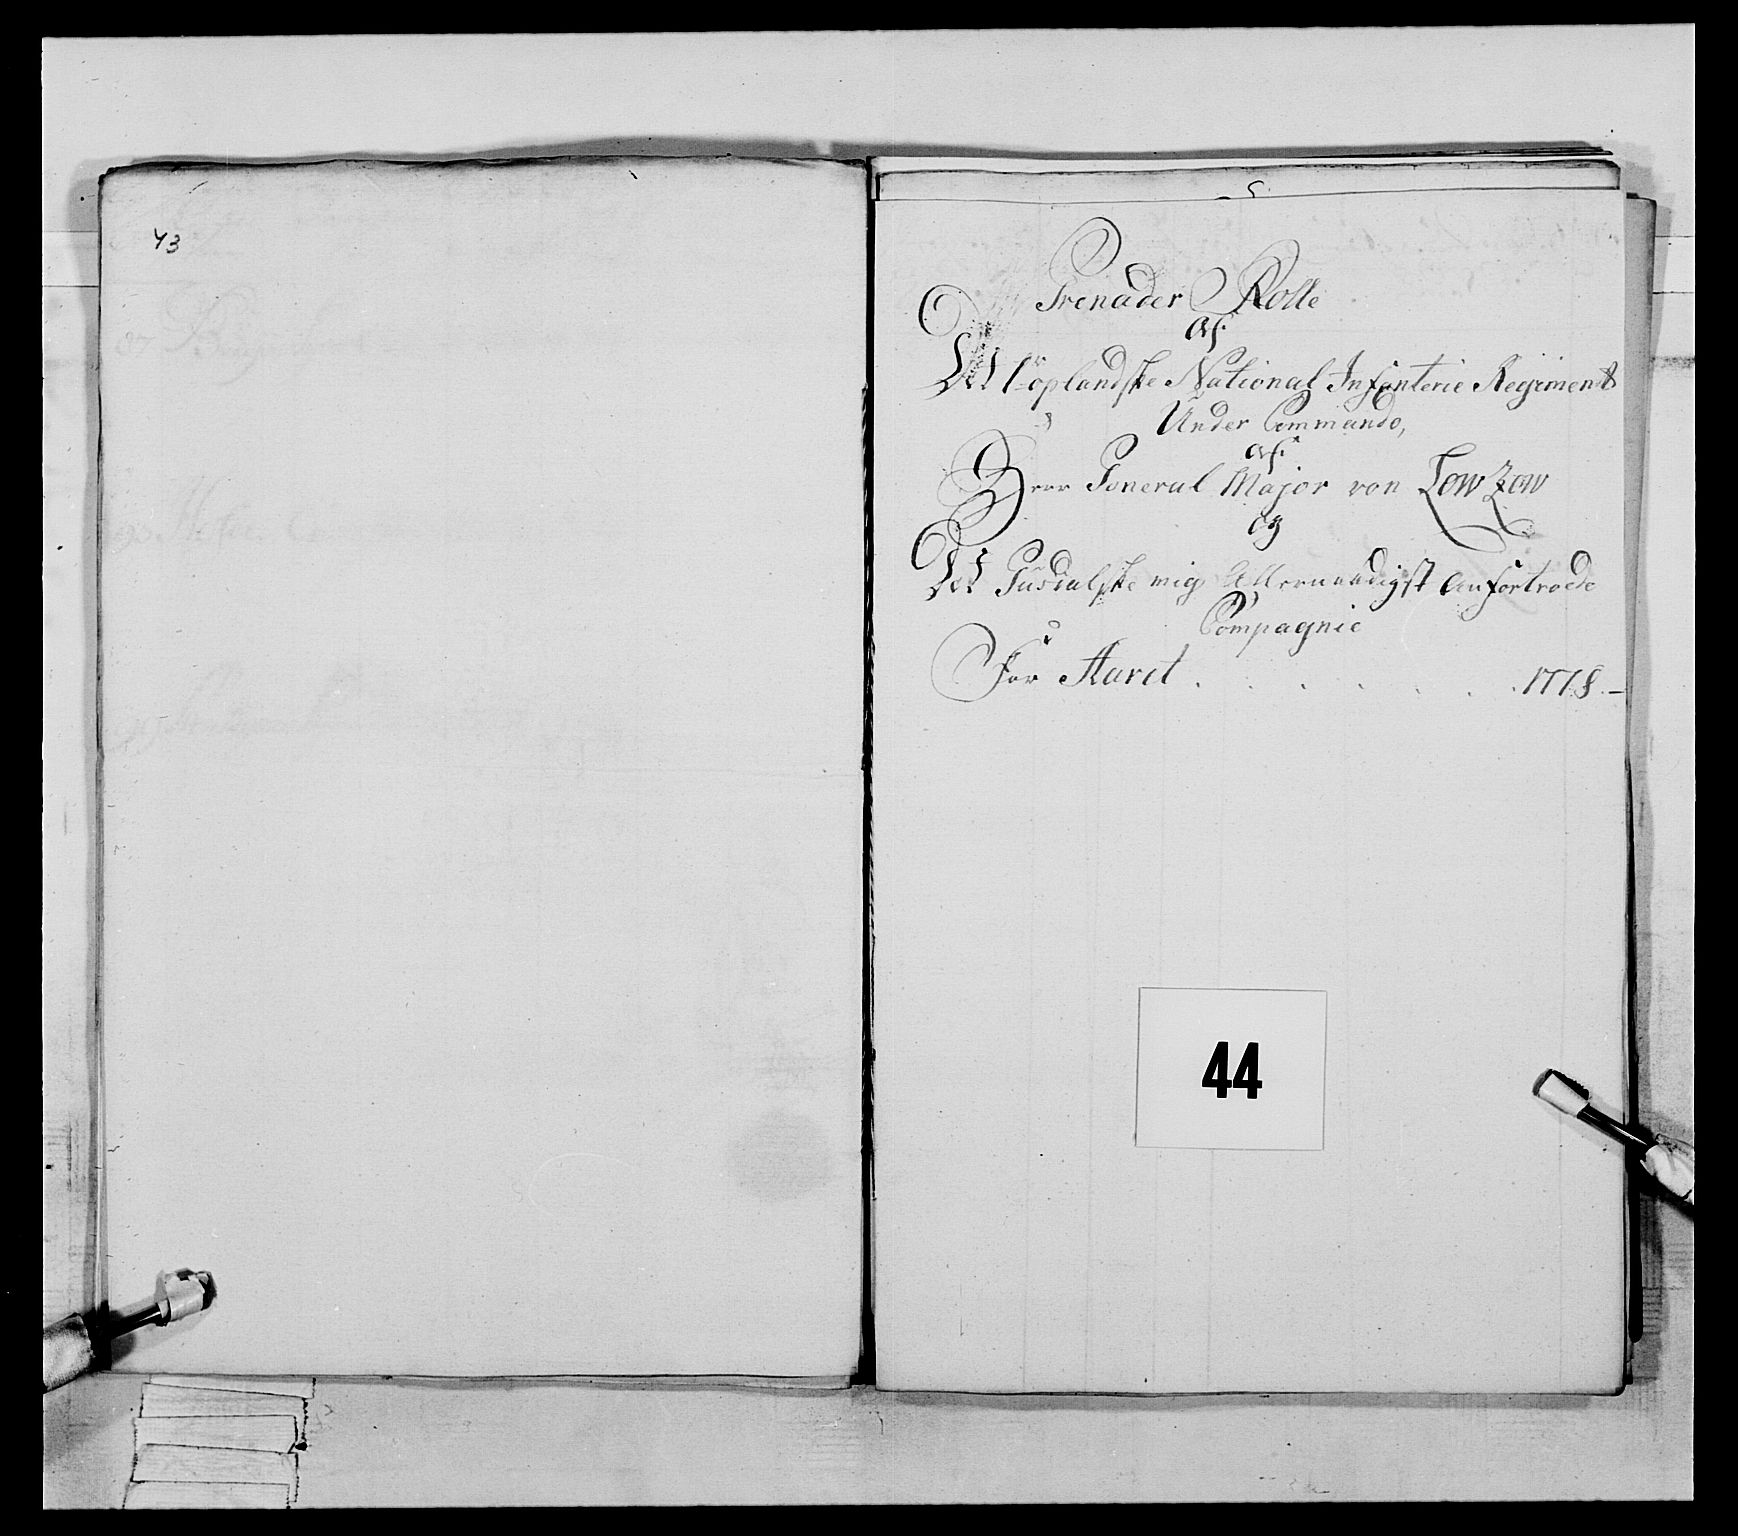 43
Grenader Rolle
Af
Det Oplandske National Infanterie Regiment
Under Commando,
af
Herr General Major von Lowzow
og
Det Gusdalske mig Allernaadigst Anfortroede
Compagnie
For Aaret . . . . . . . 1778.
44